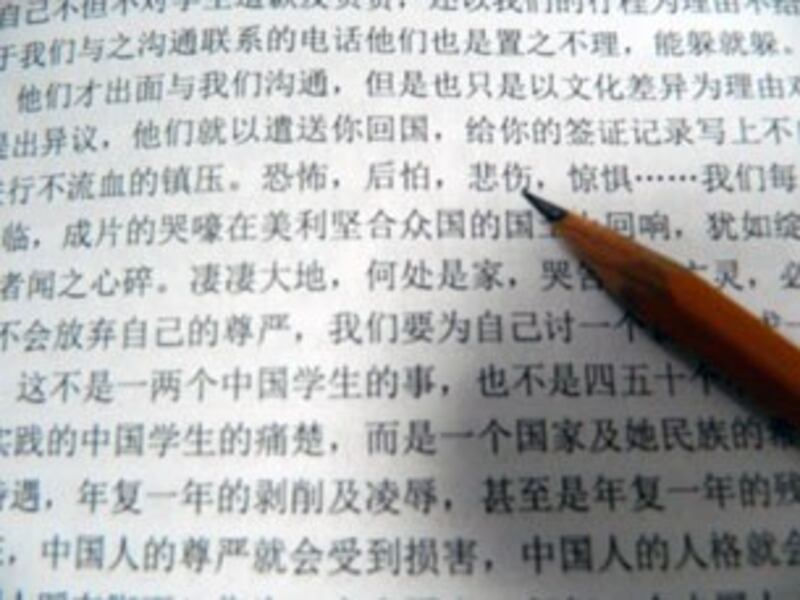 自己不但不对学生道歉及负责，还以我们的行程为理由不给
于我们与之沟通联系的电话他们也是置之不理，能躲就躲。
他们才出面与我们沟通，但是也只是以文化差异为理由对
提出异议，他们就以遣送你回国，给你的签证记录写上不
行不流血的镇压。恐怖，后怕，悲伤，惊惧……我们每
临，成片的哭嚎在美利坚合众国的国土上回响，犹如绽
者闻之心碎。凄凄大地，何处是家，哭告亡灵，必
不会放弃自己的尊严，我们要为自己讨一个
这不是一两个中国学生的事，也不是四五十个
实践的中国学生的痛楚，而是一个国家及她民族的
待遇，年复一年的剥削及凌辱，甚至是年复一年的残
，中国人的尊严就会受到损害，中国人的人格就会